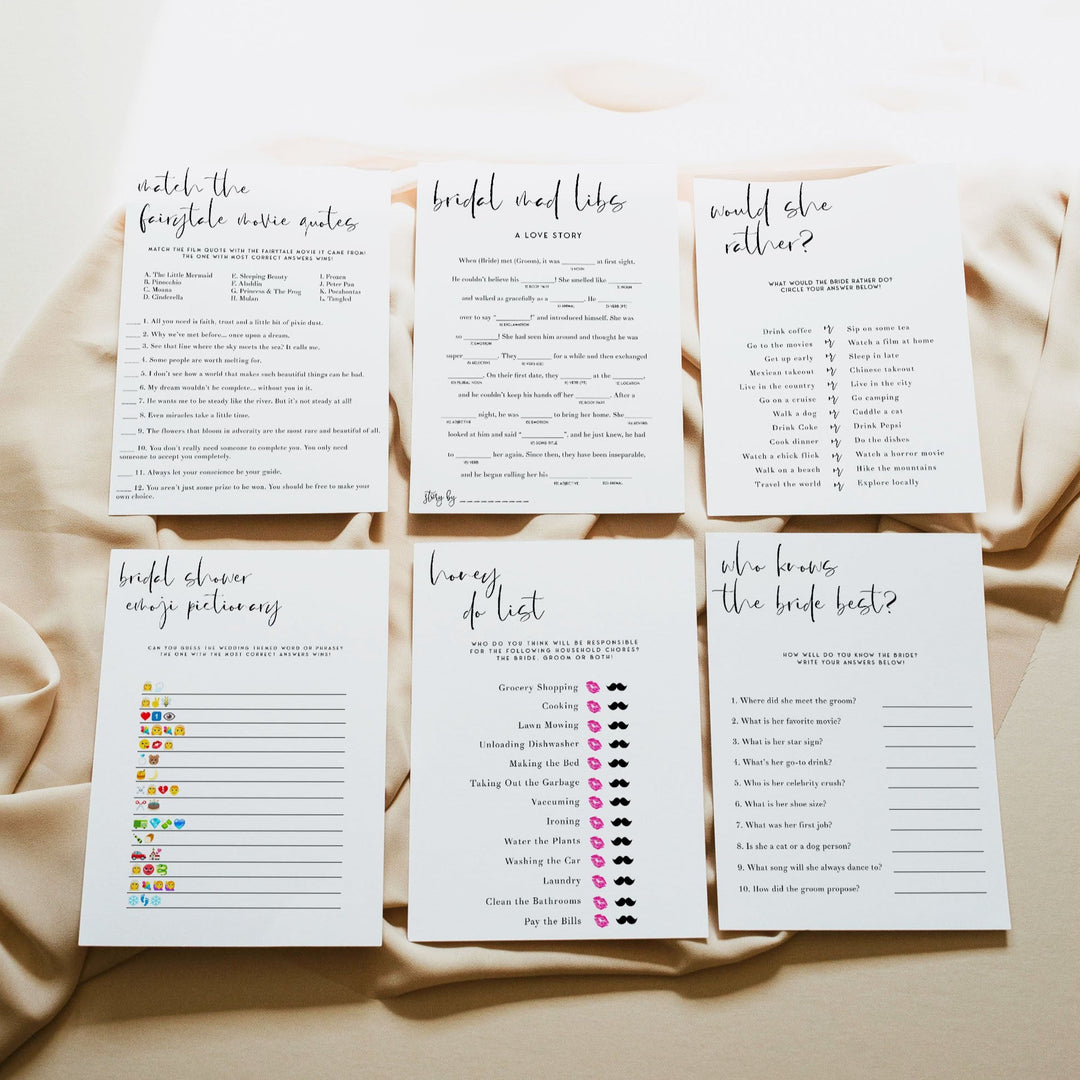 match the
fairytale movie quotes
MATCH THE FILM QUOTE WITH THE FAIRYTALE MOVIE IT CAME FROM!
THE ONE WITH MOST CORRECT ANSWERS WINS!
A. The Little Mermaid E. Sleeping Beauty I. Frozen
B. Pinocchio F. Aladdin J. Peter Pan
C. Moana G. Princess & The Frog K. Pocahontas
D. Cinderella H. Mulan L. Tangled
____ 1. All you need is faith, trust and a little bit of pixie dust.
____ 2. Why we've met before... once upon a dream.
____ 3. See that line where the sky meets the sea? It calls me.
____ 4. Some people are worth melting for.
____ 5. I don't see how a world that makes such beautiful things can be bad.
____ 6. My dream wouldn't be complete... without you in it.
____ 7. He wants me to be steady like the river. But it's not steady at all!
____ 8. Even miracles take a little time.
____ 9. The flowers that bloom in adversity are the most rare and beautiful of all.
____ 10. You don't really need someone to complete you. You only need
someone to accept you completely.
____ 11. Always let your conscience be your guide.
____ 12. You aren't just some prize to be won. You should be free to make your
own choice.
bridal mad libs
A LOVE STORY
When (Bride) met (Groom), it was ________ at first sight.
1) NOUN
He couldn't believe his ________! She smelled like ________
2) BODY PART 3) NOUN
and walked as gracefully as a ________. He ________
4) ANIMAL 5) VERB (PT)
over to say "________!" and introduced himself. She was
6) EXCLAMATION
so ________! She had seen him around and thought he was
7) EMOTION
super ________. They ________ for a while and then exchanged
8) ADJECTIVE 9) VERB (PT)
________. On their first date, they ________ at the ________,
10) PLURAL NOUN 11) VERB (PT) 12) LOCATION
and he couldn't keep his hands off her ________. After a
13) BODY PART
________ night, he was ________ to bring her home. She ________
14) ADJECTIVE 15) EMOTION
looked at him and said "________", and he just knew, he had
17) SONG TITLE
to ________ her again. Since then, they have been inseparable,
18) VERB
and he began calling her his ________ ________.
19) ADJECTIVE 20) ANIMAL
Story by ________
would she
rather?
WHAT WOULD THE BRIDE RATHER DO?
CIRCLE YOUR ANSWER BELOW!
Drink coffee or Sip on some tea
Go to the movies or Watch a film at home
Get up early or Sleep in late
Mexican takeout or Chinese takeout
Live in the country or Live in the city
Go on a cruise or Go camping
Walk a dog or Cuddle a cat
Drink Coke or Drink Pepsi
Cook dinner or Do the dishes
Watch a chick flick or Watch a horror movie
Walk on a beach or Hike the mountains
Travel the world or Explore locally
bridal shower
emoji pictionary
CAN YOU GUESS THE WEDDING THEMED WORD OR PHRASE?
THE ONE WITH THE MOST CORRECT ANSWERS WINS!
honey
do list
WHO DO YOU THINK WILL BE RESPONSIBLE
FOR THE FOLLOWING HOUSEHOLD CHORES?
THE BRIDE, GROOM OR BOTH!
Grocery Shopping
Cooking
Lawn Mowing
Unloading Dishwasher
Making the Bed
Taking Out the Garbage
Vaccuming
Ironing
Water the Plants
Washing the Car
Laundry
Clean the Bathrooms
Pay the Bills
who knows
the bride best?
HOW WELL DO YOU KNOW THE BRIDE?
WRITE YOUR ANSWERS BELOW!
1. Where did she meet the groom?
2. What is her favorite movie?
3. What is her star sign?
4. What's her go-to drink?
5. Who is her celebrity crush?
6. What is her shoe size?
7. What was her first job?
8. Is she a cat or a dog person?
9. What song will she always dance to?
10. How did the groom propose?